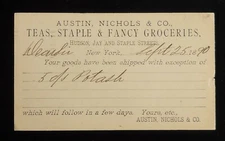 AUSTIN, NICHOLS & CO.,
TEAS, STAPLE & FANCY GROCERIES,
HUDSON, JAY AND STAPLE STREETS,
New York, Sept 25 1890
Your goods have been shipped with exception of
Potash
which will follow in a few days. Yours, etc.,
AUSTIN, NICHOLS & CO.